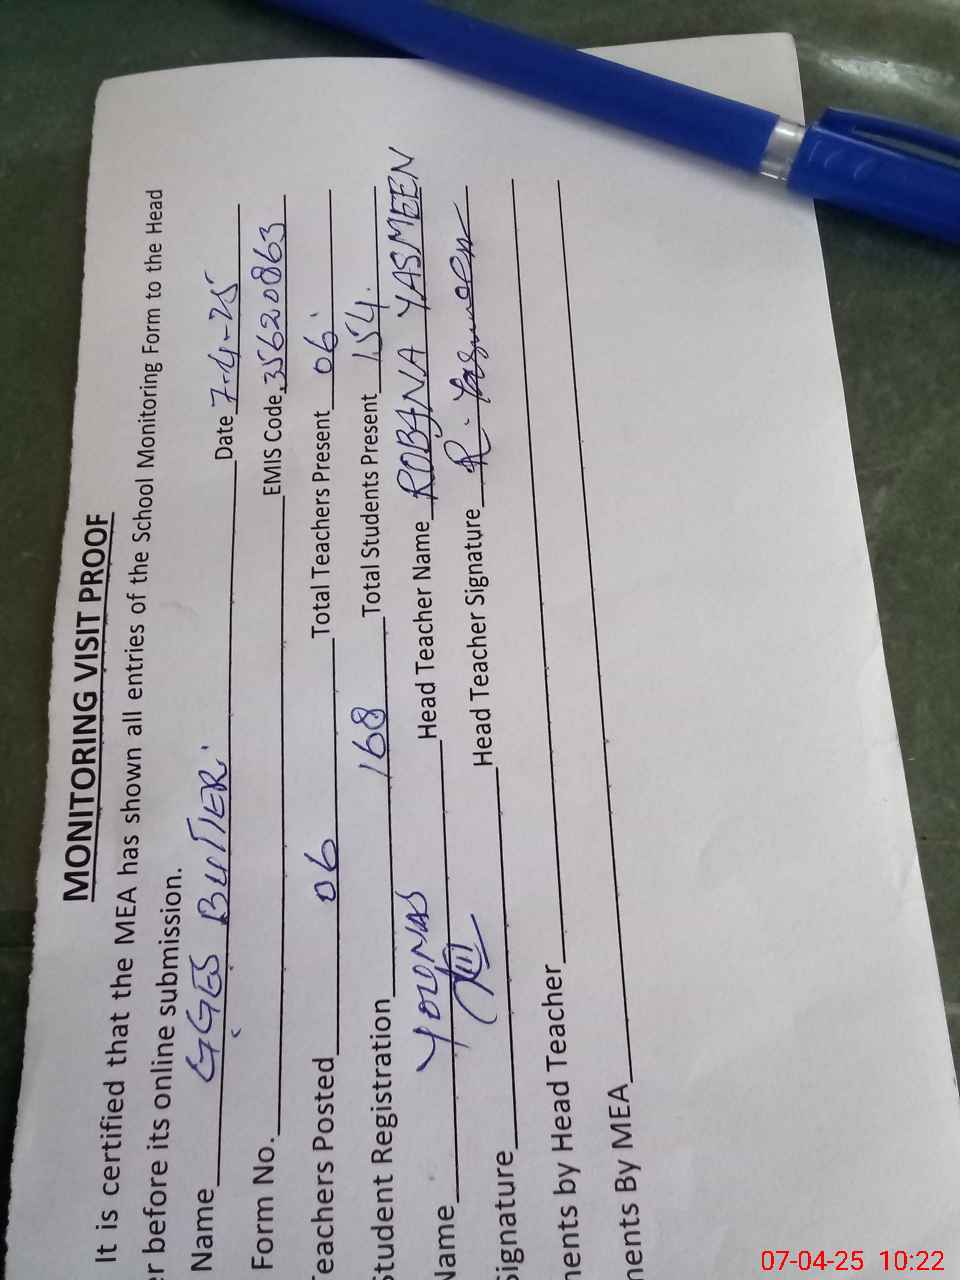 MONITORING VISIT PROOF
It is certified that the MEA has shown all entries of the School Monitoring Form to the Head
r before its online submission.
Name GGES BUTIER. Date 7-4-25
Form No. EMIS Code 35620863
Teachers Posted 06 Total Teachers Present 06
Student Registration 168 Total Students Present 154
Name Head Teacher Name ROBINA YASMEEN
Signature Head Teacher Signature R. Yasmeen
ments by Head Teacher
ments By MEA
07-04-25 10:22